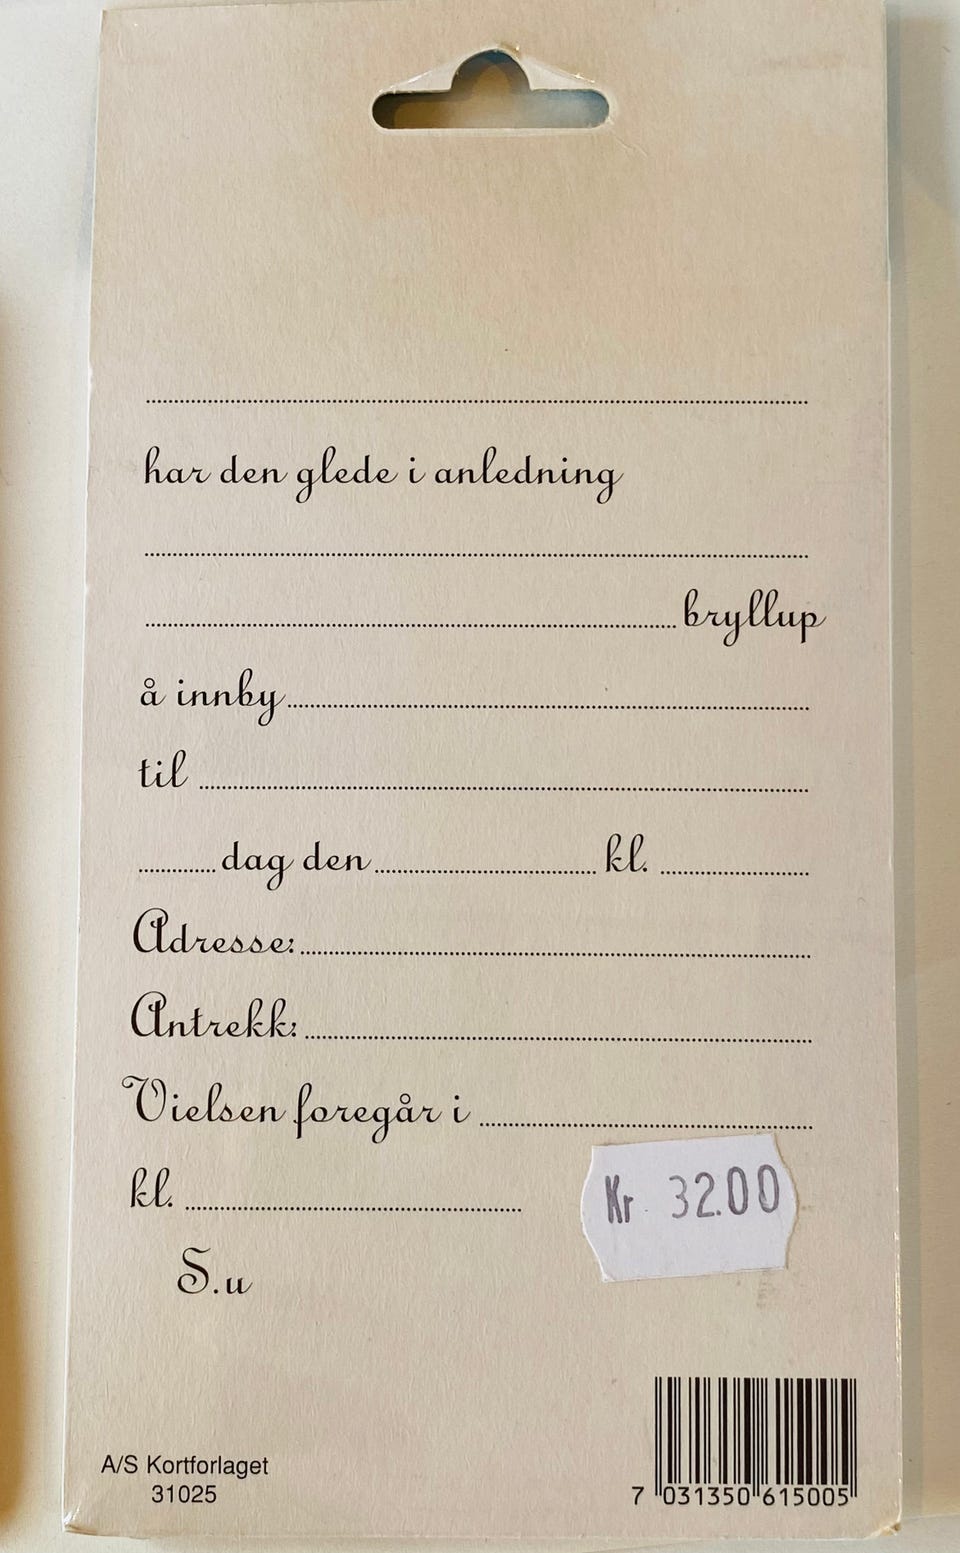 har den glede i anledning
bryllup
å innby
til
dag den kl.
Adresse:
Antrekk:
Vielsen foregår i
kl.
Kr 32.00
S.u
A/S Kortforlaget
31025
7 031350 615005